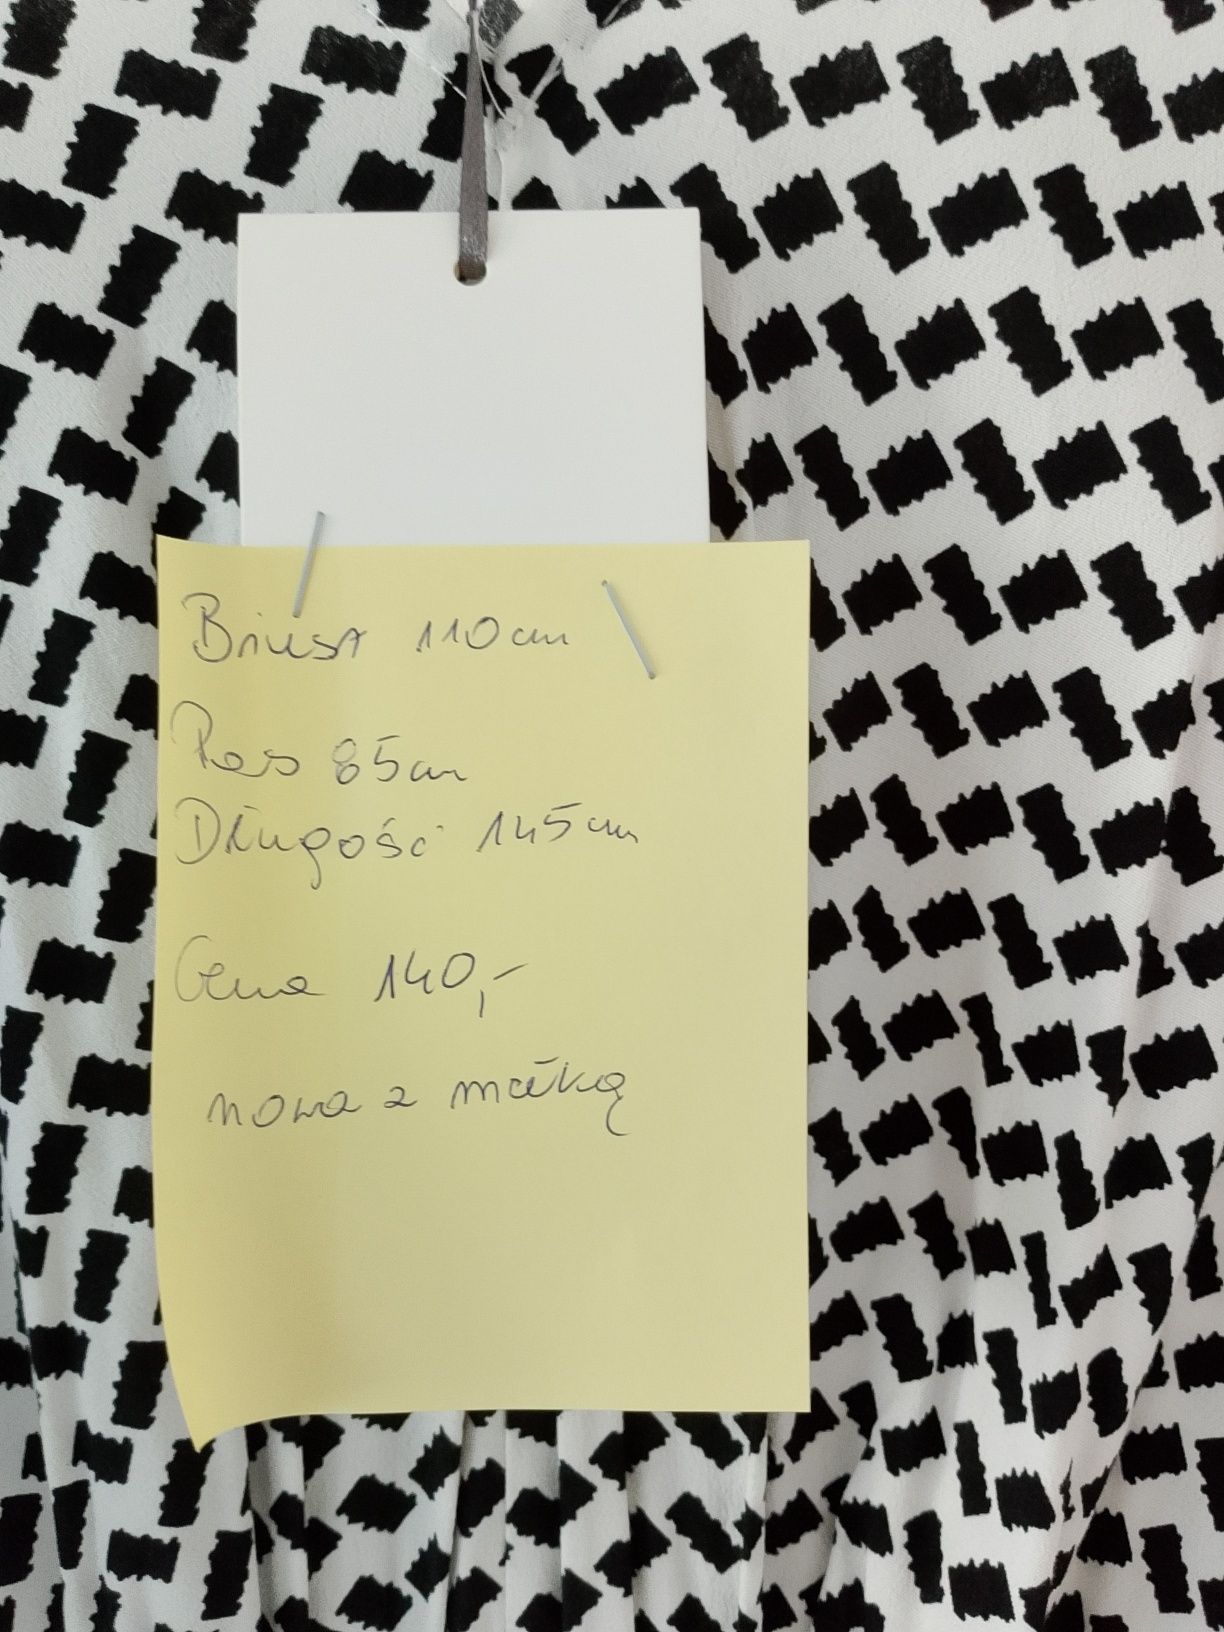 Biust 110cm
Pas 85cm
Długość 145cm
Cena 140,-
nowa z metką